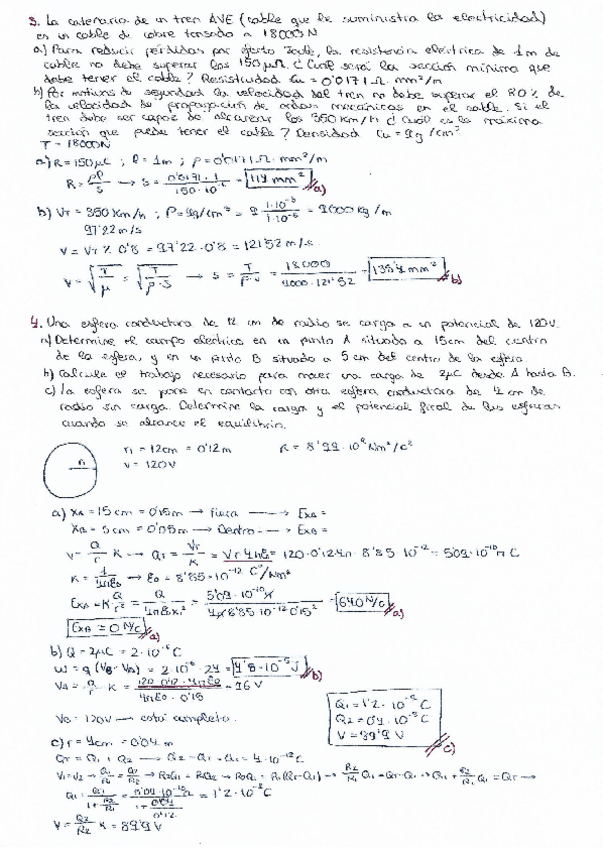 3. La catenaria de un tren AVE (cable que le suministra la electricidad)
es un cable de cobre tensado a 18000N
a) Para reducir pérdidas por efecto Joule, la resistencia eléctrica de 1m de
cable no debe superar los 150μΩ. ¿Cuál será la sección mínima que
debe tener el cable? Resistividad Cu = 0'0171 Ω. mm²/m
b) Por motivos de seguridad la velocidad del tren no debe superar el 80% de
la velocidad de propagación de ondas mecánicas en el cable. Si el
tren debe ser capaz de alcanzar los 350 km/h ¿Cuál es la máxima
sección que puede tener el cable? Densidad Cu = 9g/cm³
T = 18000N
a) R = 150μΩ ; l = 1m ; ρ = 0'0171 Ω. mm²/m
R = ρl/s → s = 0'0171·1 / 150·10⁻⁶ = 114 mm² a)
b) VT = 350 Km/h ; ρ = 9g/cm³ = 9 1·10⁻³/1·10⁻⁶ = 9000 kg/m
97'22 m/s
V = VT % 0'8 = 97'22 · 0'8 = 121'52 m/s
V = √T/μ = √T/ρ·S → s = T/ρ·v = 18000 / 9000·121'52 = 135'4 mm² b)
4. Una esfera conductora de 12 cm de radio se carga a un potencial de 120V.
a) Determine el campo eléctrico en un punto A situado a 15cm del centro
de la esfera, y en un punto B situado a 5 cm del centro de la esfera.
b) Calcule el trabajo necesario para mover una carga de 2μC desde A hasta B.
c) La esfera se pone en contacto con otra esfera conductora de 4 cm de
radio sin carga. Determine la carga y el potencial final de las esferas
cuando se alcance el equilibrio.
r₁ = 12cm = 0'12m K = 8'99·10⁹ Nm²/C²
V = 120V
a) XA = 15cm = 0'15m → Fuera → ExA =
XB = 5cm = 0'05m → Dentro → ExB =
V = Q/r K → QT = Vr/K = Vr4πε₀ = 120·0'12·4π·8'85·10⁻¹²
K = 1/4πε₀ → ε₀ = 8'85·10⁻¹² C²/Nm²
ExA = K Q/r² = Q/4πε₀x² = 640 N/C a)
ExB = 0 N/C a)
b) Q = 2μC = 2·10⁻⁶C
W = q (VB - VA) = 2·10⁻⁶·24 = 4'8·10⁻⁵ J b)
VA = Q/r K = 120·0'12·4πε₀ / 4πε₀·0'15 = 96 V
VB = 120V → está completo.
V = 89'9 V c)
c) r = 4cm = 0'04m
QT = Q₁ + Q₂
V = Q₂/R₂ K = 89'9 V